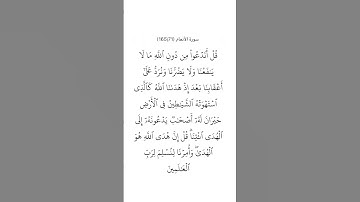 سورة الأنعام (71\165)
قُلْ أَنَدْعُوا۟ مِن دُونِ ٱللَّهِ مَا لَا
يَنفَعُنَا وَلَا يَضُرُّنَا وَنُرَدُّ عَلَىٰٓ
أَعْقَابِنَا بَعْدَ إِذْ هَدَىٰنَا ٱللَّهُ كَٱلَّذِى
ٱسْتَهْوَتْهُ ٱلشَّيَٰطِينُ فِى ٱلْأَرْضِ
حَيْرَانَ لَهُۥٓ أَصْحَٰبٌ يَدْعُونَهُۥٓ إِلَى
ٱلْهُدَى ٱئْتِنَا ۗ قُلْ إِنَّ هُدَى ٱللَّهِ هُوَ
ٱلْهُدَىٰ ۖ وَأُمِرْنَا لِنُسْلِمَ لِرَبِّ
ٱلْعَٰلَمِينَ